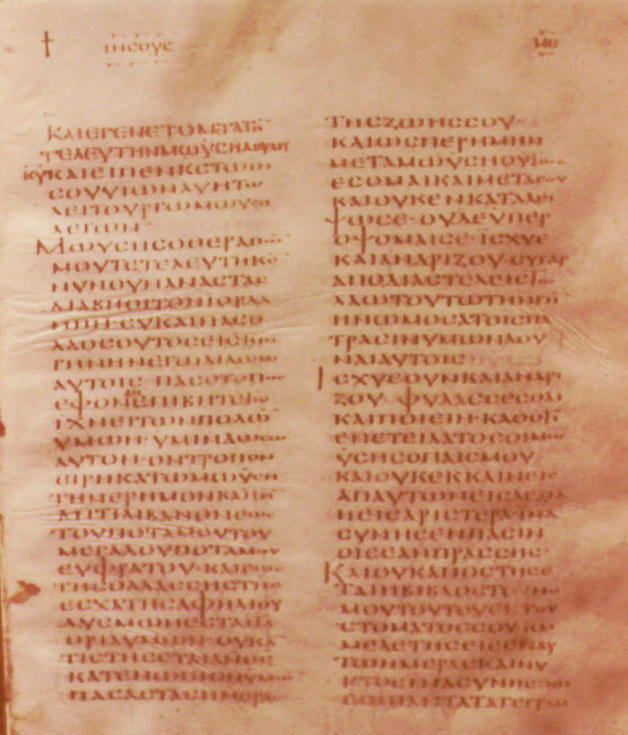 ΙΗСΟΥС
ΚΑΙΕΓΕΝΕΤΟΜΕΤΑΤΗ
ΤΕΛΕΥΤΗΝΜΩΥСΗΔΟΥΛΟΥ
ΚΥΚΑΙΕΙΠΕΝΚСΤΩΙΗ
СΟΥΥΙΩΝΑΥΗΤΩ
ΛΕΙΤΟΥΡΓΩΜΩΥСΗ
ΛΕΓΩΝ
ΜΩΥСΗСΟΘΕΡΑΠΩ
ΜΟΥΤΕΤΕΛΕΥΤΗΚΕ
ΝΥΝΟΥΝΑΝΑСΤΑС
ΔΙΑΒΗΘΙΤΟΝΙΟΡΔΑ
ΝΗΝ·СΥΚΑΙΠΑСΟ
ΛΑΟСΟΥΤΟСΕΙСΤΗ
ΓΗΝΗΝΕΓΩΔΙΔΩΜΙ
ΑΥΤΟΙС ΠΑСΟΤΟΠΟС
ΕΦΟΝΕΠΙΒΗΤΕΤΩ
ΙΧΝΕΙΤΩΝΠΟΔΩ
ΥΜΩΝ·ΥΜΙΝΔΩСΩ
ΑΥΤΟΝ·ΟΝΤΡΟΠΟΝ
ΕΙΡΗΚΑΤΩΜΩΥСΗ
ΤΗΝΕΡΗΜΟΝΚΑΙΤΟ
ΑΝΤΙΛΙΒΑΝΟΝΕΩС
ΤΟΥΠΟΤΑΜΟΥΤΟΥ
ΜΕΓΑΛΟΥΠΟΤΑΜΟΥ
ΕΥΦΡΑΤΟΥ·ΚΑΙΕΩС
ΤΗСΘΑΛΑССΗСΤΗС
ΕСΧΑΤΗСΑΦΗΛΙΟΥ
ΔΥСΜΩΝΕСΤΑΙΤΑ
ΟΡΙΑΥΜΩΝ·ΟΥΚΑ
ΤΙСΤΗСΕΤΑΙΑΝΘС
ΚΑΤΕΝΩΠΙΟΝΥΜΩ
ΠΑСΑСΤΑСΗΜΕΡΑС
ΤΗСΖΩΗССΟΥ·
ΚΑΙΩСΠΕΡΗΜΗΝ
ΜΕΤΑΜΩΥСΗΟΥΤΩС
ΕСΟΜΑΙΚΑΙΜΕΤΑСΟΥ
ΚΑΙΟΥΚΕΝΚΑΤΑΛΕΙ
ΨΩСΕ·ΟΥΔΕΥΠΕΡ
ΟΨΟΜΑΙСΕ·ΙСΧΥΕ
ΚΑΙΑΝΔΡΙΖΟΥ·СΥΓΑΡ
ΑΠΟΔΙΑСΤΕΛΕΙСΤΩ
ΛΑΩΤΟΥΤΩΤΗΝΓΗ
ΗΝΩΜΟСΑΤΟΙСΠΑ
ΤΡΑСΙΝΥΜΩΝΔΟΥ
ΝΑΙΑΥΤΟΙС
ΙСΧΥΕΟΥΝΚΑΙΑΝΔΡΙ
ΖΟΥ ΦΥΛΑССΕСΘΑΙ
ΚΑΙΠΟΙΕΙΝ·ΚΑΘΟΤΙ
ΕΝΕΤΕΙΛΑΤΟСΟΙΜΩ
ΥСΗСΟΠΑΙСΜΟΥ
ΚΑΙΟΥΚΕΚΚΛΙΝΕΙС
ΑΠΑΥΤΩΝΕΙСΔΕΞΙΑ
ΗΕΙСΑΡΙСΤΕΡΑΙΝΑ
СΥΝΗСΕΝΠΑСΙΝ
ΟΙСΕΑΝΠΡΑССΗС·
ΚΑΙΟΥΚΑΠΟСΤΗСΕ
ΤΑΙΗΒΙΒΛΟСΤΟΥΝΟ
ΜΟΥΤΟΥΤΟΥΕΚΤΟΥ
СΤΟΜΑΤΟССΟΥΚΑΙ
ΜΕΛΕΤΗСΕΙСΕΝΑΥ
ΤΩΗΜΕΡΑСΚΑΙΝΥ
ΚΤΟСΙΝΑСΥΝΗСΠΟΙ
ΕΙΝΠΑΝΤΑΤΑΓΕΓΡΑΜ